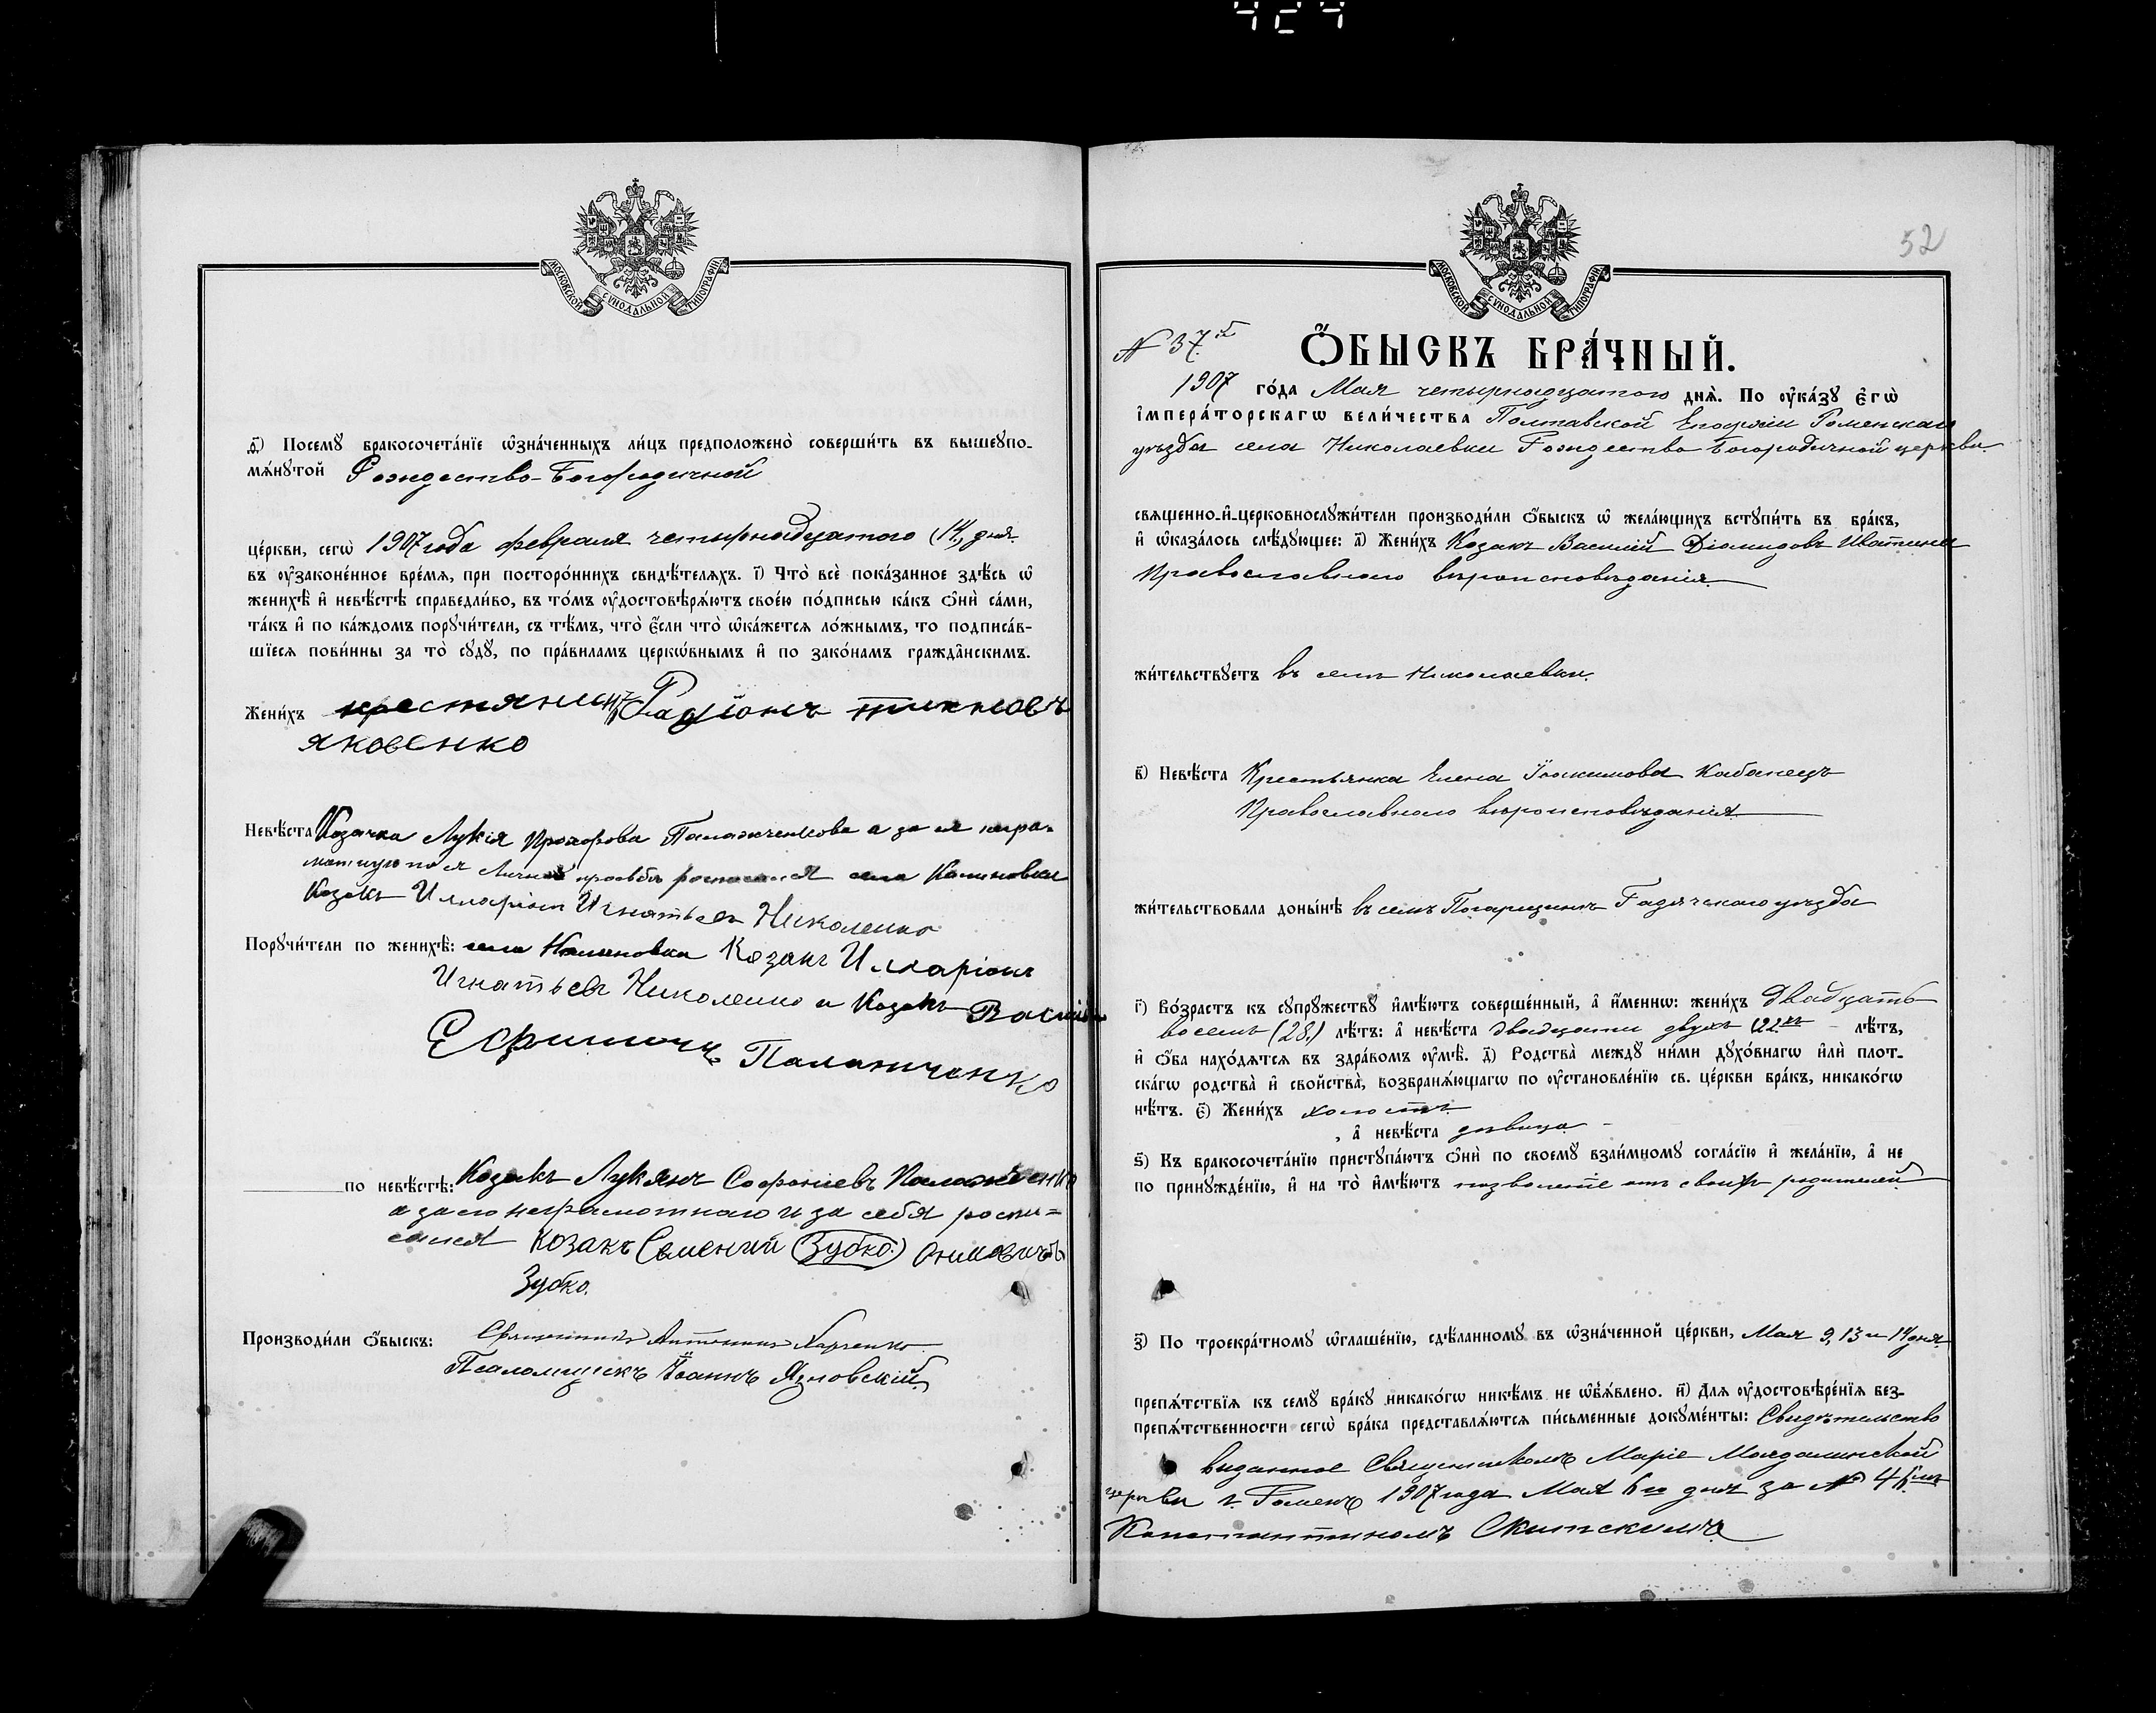 МОСКОВСКОЙ СУНОДАЛЬНОЙ ТИПОГРАФІИ
Посемꙋ бракосочета́нїе ѡ҆зна́ченныхъ ли́цъ предположено̀ соверши́ть въ вышеꙋпо-
мѧ́нꙋтой Рождество-Богородичной
це́ркви, сегѡ̀ 1907 года февраля четырнадцатого (14) дня
въ ᲂу҆законе́нное вре́мѧ, при посторо́ннихъ свидѣ́телѧхъ. і҃) Что̀ всѐ пока́занное здѣ́сь ѡ҆
женихѣ̀ и҆ невѣ́стѣ справедли́во, въ то́мъ ᲂу҆достовѣрѧ́ютъ свое́ю по́дписью ка́къ ѻ҆нѝ са́ми,
та́къ и҆ по ка́ждомъ порꙋчи́тели, съ тѣ́мъ, что̀ є҆́сли что̀ ѡ҆ка́жетсѧ ло́жнымъ, то подписа́в-
шїесѧ пови́нны за то̀ сꙋдꙋ̀, по пра́виламъ церкѡ́внымъ и҆ по зако́намъ гражда̂нскимъ.
Жени́хъ крестянинъ Радіонъ
яковенко
Невѣ́ста Козачка Лукія Прохорова а за ея негра-
мотную по ея личной просьбѣ росписался села Калиновки
Козакъ Илларіон Игнатьев Николенко
Порꙋчи́тели по женихѣ̀: села Калиновки Козакъ Илларіонъ
Игнатьевъ Николенко и Козакъ Василій
Ефимочъ Паламчанко
по невѣ́стѣ: Козакъ Лукянъ Софоніевъ
а за его неграмотного и за себя роспи=
сался козакъ Семений (Зубко)
Зубко.
Производи́ли ѻ҆́быскъ: Священникъ Антонинъ Харченко
Псаломщикъ Іоаннъ Язновскій
52
МОСКОВСКОЙ СУНОДАЛЬНОЙ ТИПОГРАФІИ
№ 37й
Ѻ҆́БЫСКЪ БРА́ЧНЫЙ.
1907 го́да Мая четырнадцатого днѧ̀. По ᲂу҆ка́зꙋ є҆гѡ̀
і҆мпера́торскагѡ вели́чества Полтавской Епархіи Роменскаго
уѣзда села Николаевки Рождество Богородичной церкви
свѧщенно-и҆-церковнослꙋжи́тели производи́ли ѻ҆́быскъ ѡ҆ жела́ющихъ встꙋпи́ть въ бра́къ,
и҆ ѡ҆каза́лось слѣ́дꙋющее: а҃) Жени́хъ Козакъ Василій Діомидовъ
Православного вѣроисповѣданія
жи́тельствꙋетъ въ селѣ Николаевки.
в҃) Невѣ́ста Крестьянка Елена Іоакимова Кабанецъ
Православного вѣроисповѣданія
жи́тельствовала доны́нѣ въ селѣ Погарщинѣ Гадячского уѣзда
г҃) Во́зрастъ къ сꙋпрꙋ́жествꙋ и҆мѣ́ютъ соверше́нный, а҆ и҆́меннѡ: жени́хъ двадцать
восемь (28.) лѣ́тъ: а҆ невѣ́ста двадцати двухъ (22хъ лѣ́тъ,
и҆ ѻ҆́ба нахо́дѧтсѧ въ здра́вомъ ᲂу҆мѣ̀. д҃) Родства̀ междꙋ ни́ми дꙋхо́внагѡ и҆лѝ плот-
ска́гѡ родства̀ и҆ свойства̀, возбранѧ́ющагѡ по ᲂу҆становле́нїю св. це́ркви бра́къ, никако́гѡ
нѣ́тъ. є҃) Жени́хъ холостъ
, а҆ невѣ́ста дѣвица
ѕ҃) Къ бракосочета́нїю пристꙋпа́ютъ ѻ҆нѝ по своемꙋ̀ взаи́мномꙋ согла́сїю и҆ жела́нїю, а҆ не
по принꙋжде́нїю, и҆ на то̀ и҆мѣ́ютъ позволеніе отъ своихъ родителей
з҃) По троекра́тномꙋ ѡ҆глаше́нїю, сдѣ́ланномꙋ въ ѡ҆зна́ченной це́ркви, Мая 9, 13 и 14 дня
препѧ́тствїѧ къ семꙋ̀ бра́кꙋ никако́гѡ никѣ́мъ не ѡ҆б̾ѧ́влено. и҃) Длѧ ᲂу҆достовѣре́нїѧ без-
препѧ́тственности сегѡ̀ бра́ка представлѧ́ютсѧ пи́сьменные докꙋме́нты: Свидѣтельство
выданное Священникомъ Маріе Магдалинской
церкви г. Роменъ 1907 года Мая 6го дня за №
Константиномъ Скитскимъ